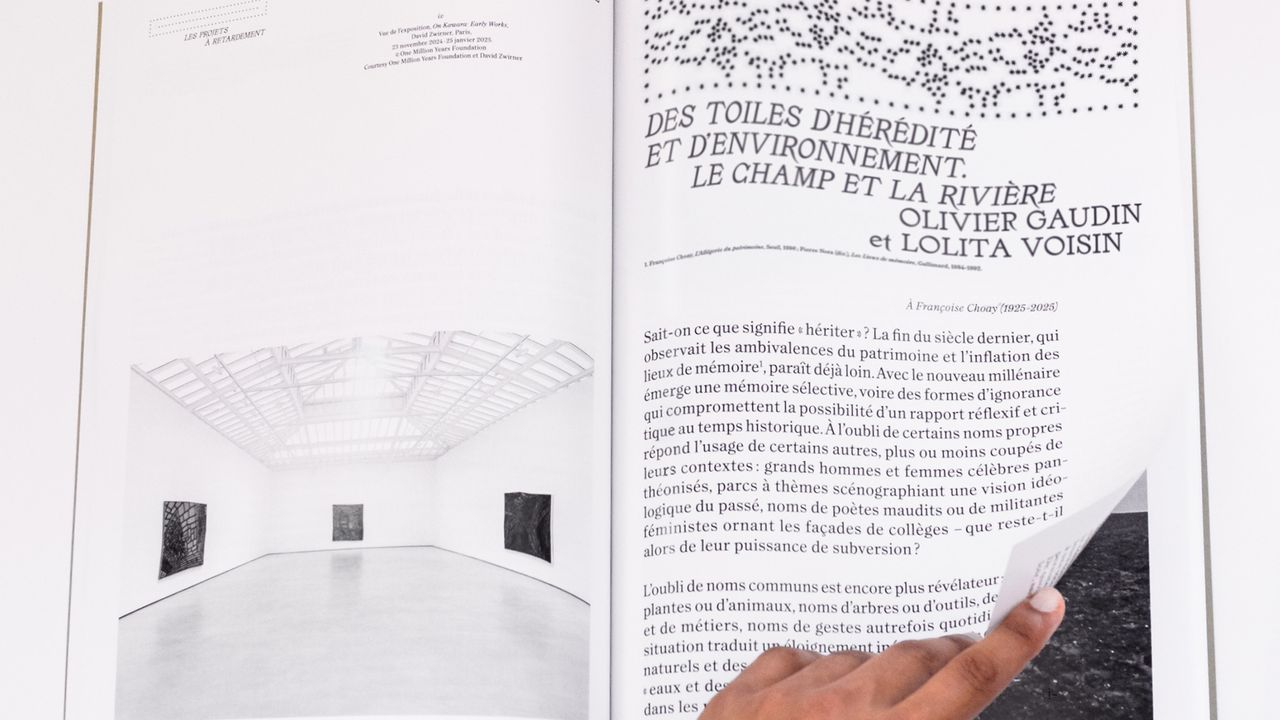 LES PROJETS
À RETARDEMENT
Vue de l'exposition, On Kawara- Early Works,
David Zwirner, Paris,
23 novembre 2024 - 25 janvier 2025.
© One Million Years Foundation
Courtesy One Million Years Foundation et David Zwirner
DES TOILES D'HÉRÉDITÉ
ET D'ENVIRONNEMENT.
LE CHAMP ET LA RIVIÈRE
OLIVIER GAUDIN
et LOLITA VOISIN
1. Françoise Choay, L'Allégorie du patrimoine, Seuil, 1996 ; Pierre Nora (dir.), Les Lieux de mémoire, Gallimard, 1984-1992.
À Françoise Choay (1925-2025)
Sait-on ce que signifie « hériter » ? La fin du siècle dernier, qui
observait les ambivalences du patrimoine et l'inflation des
lieux de mémoire¹, paraît déjà loin. Avec le nouveau millénaire
émerge une mémoire sélective, voire des formes d'ignorance
qui compromettent la possibilité d'un rapport réflexif et cri-
tique au temps historique. À l'oubli de certains noms propres
répond l'usage de certains autres, plus ou moins coupés de
leurs contextes : grands hommes et femmes célèbres pan-
théonisés, parcs à thèmes scénographiant une vision idéo-
logique du passé, noms de poètes maudits ou de militantes
féministes ornant les façades de collèges – que reste-t-il
alors de leur puissance de subversion ?
L'oubli de noms communs est encore plus révélateur :
plantes ou d'animaux, noms d'arbres ou d'outils, de
et de métiers, noms de gestes autrefois quotidi
situation traduit un éloignement
naturels et des
« eaux et des
dans les